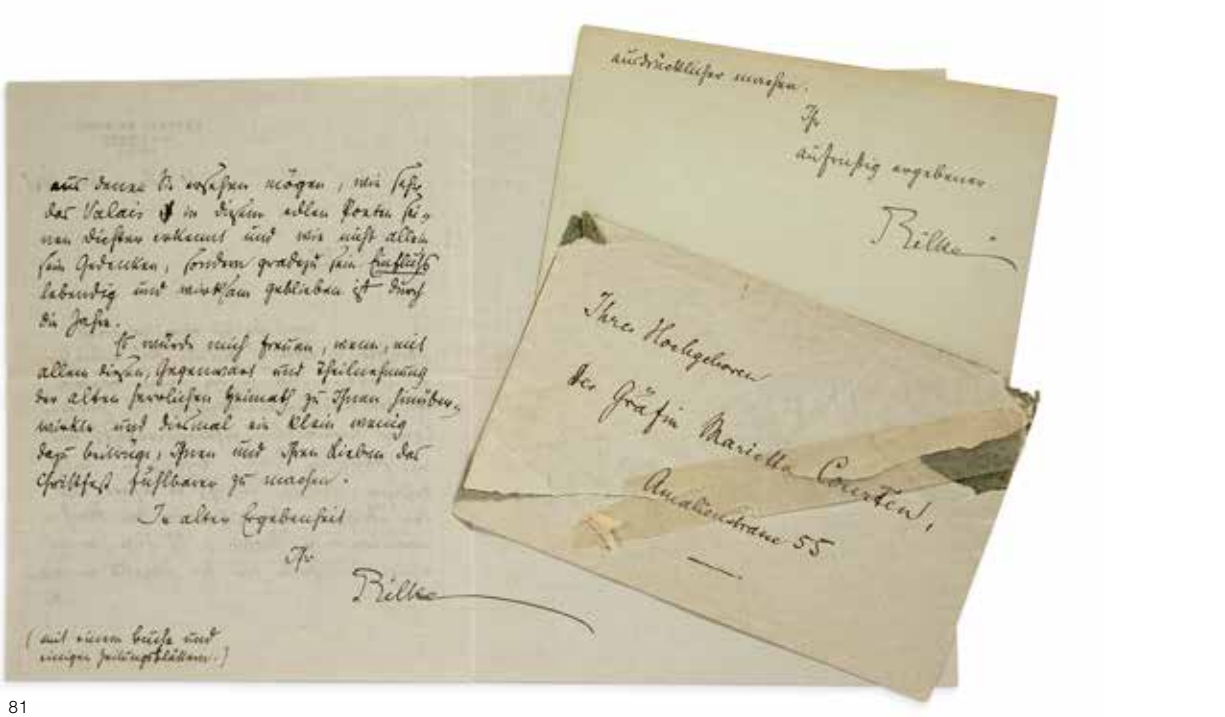 aus denen Sie ersehen mögen, wie sehr
das Valais in diesem edlen Poeten sei-
nen Dichter erkennt und wie nicht allein
sein Gedenken, sondern gradezu sein Einfluss
lebendig und wirksam geblieben ist durch
die Jahre.
Es würde mich freuen, wenn, mit
allem diesen, Gegenwart und Theilnehmung
der alten herrlichen Heimath zu Ihnen hinüber-
wirkte und diesmal ein klein wenig
dazu beitrüge, Ihnen und Ihren Lieben das
Christfest fühlbarer zu machen.
In alter Ergebenheit
Ihr
Rilke
(mit einem Buche und
einigen Zeitungsblättern.)
ausdrücklicher machen.
Ihr
aufrichtig ergebener
Rilke
Ihrer Hochgeboren
der Gräfin Marietta Courten,
Amalienstrasse 55
81